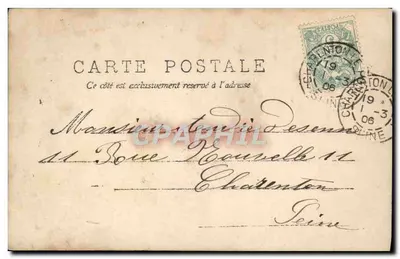 CARTE POSTALE
Ce côté est exclusivement réservé à l'adresse
CHARENTON
19
1 -3
06
SEINE
CHARENTON
19
1 -3
06
SEINE
CPAPHIL
Monsieur
11 Rue Nouvelle 11
Charenton
Seine